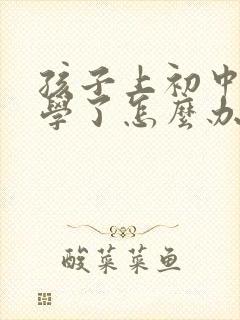 孩子上初中
學了怎麼办
酸菜菜鱼